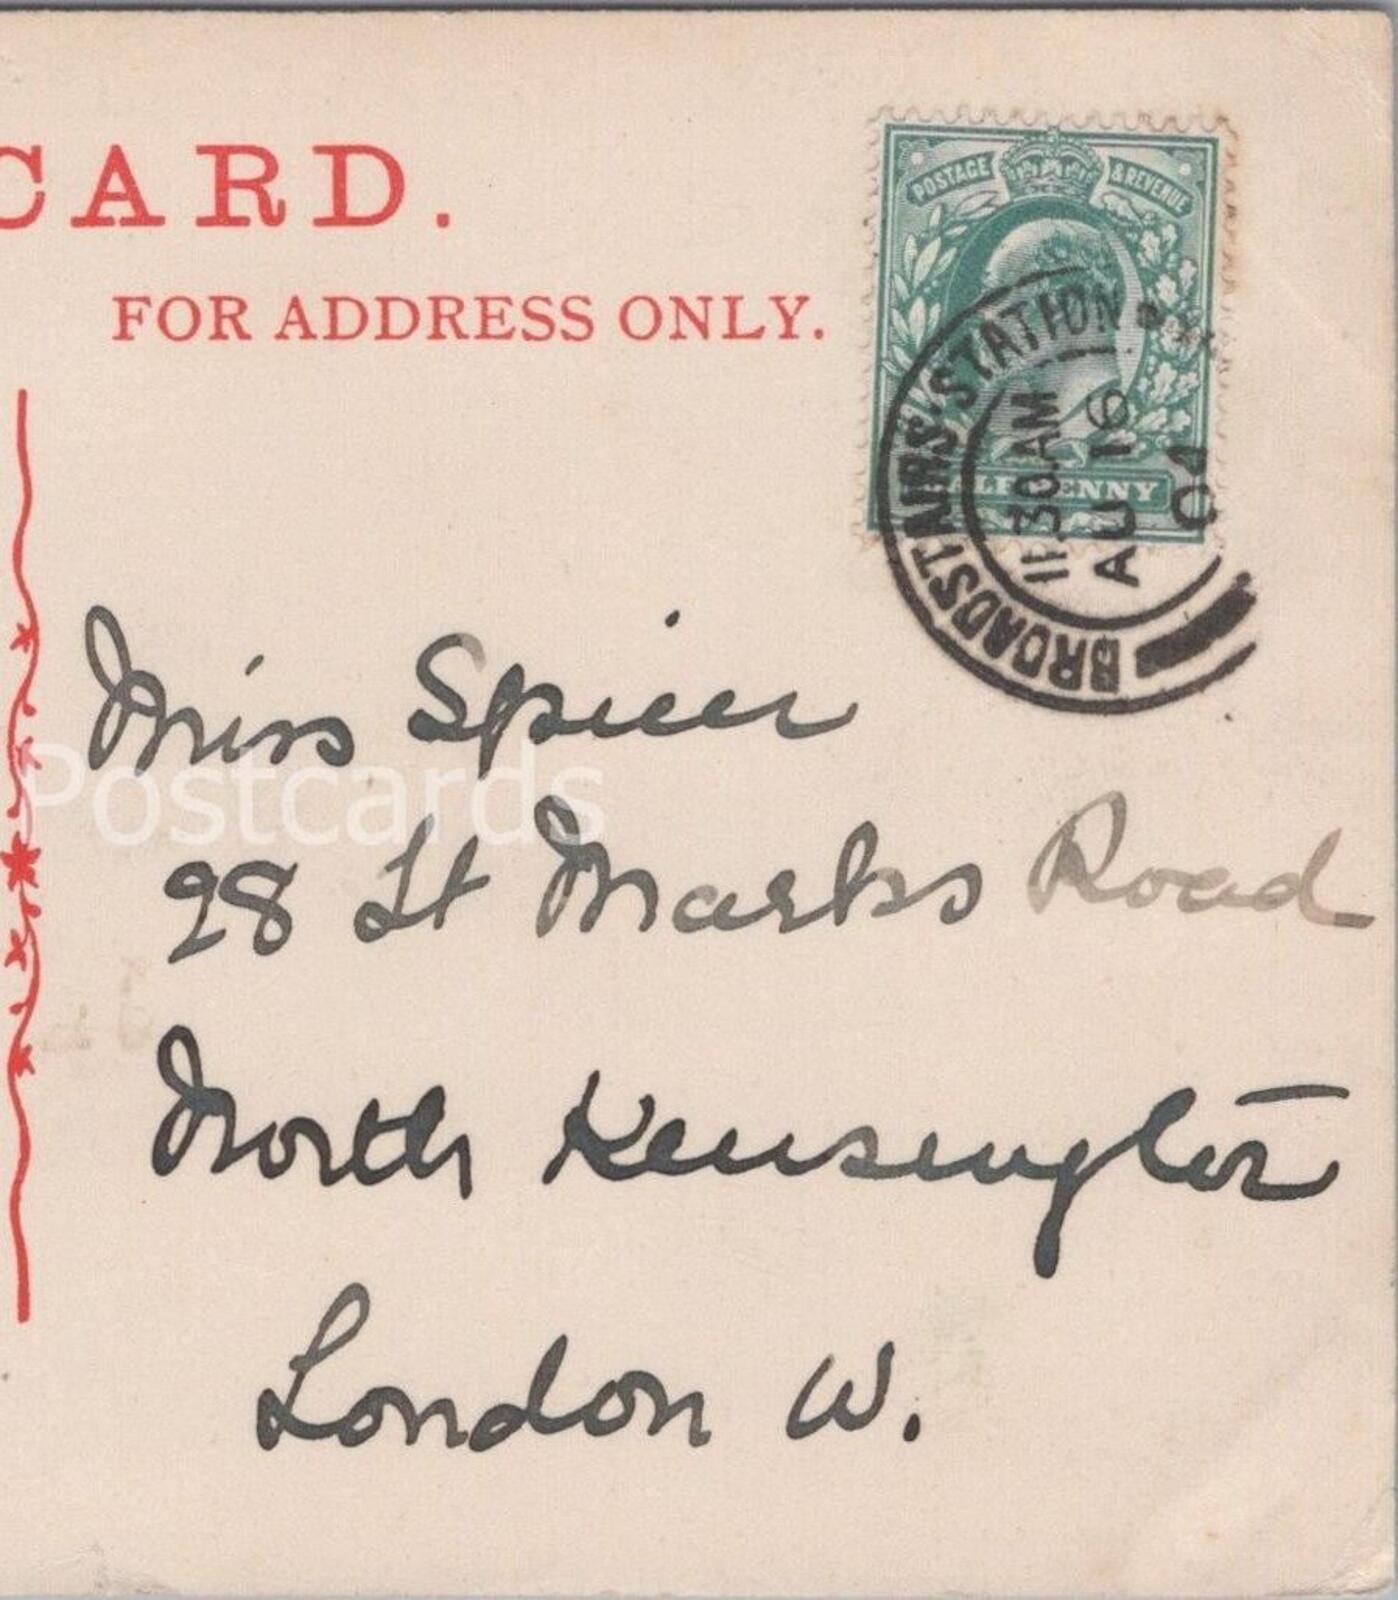 CARD.
FOR ADDRESS ONLY.
POSTAGE & REVENUE
HALFPENNY
BROADSTAIRS STATION
11.30 AM
AU 16
04
Miss Spicer
98 St Marks Road
North Kensington
London W.
Postcards